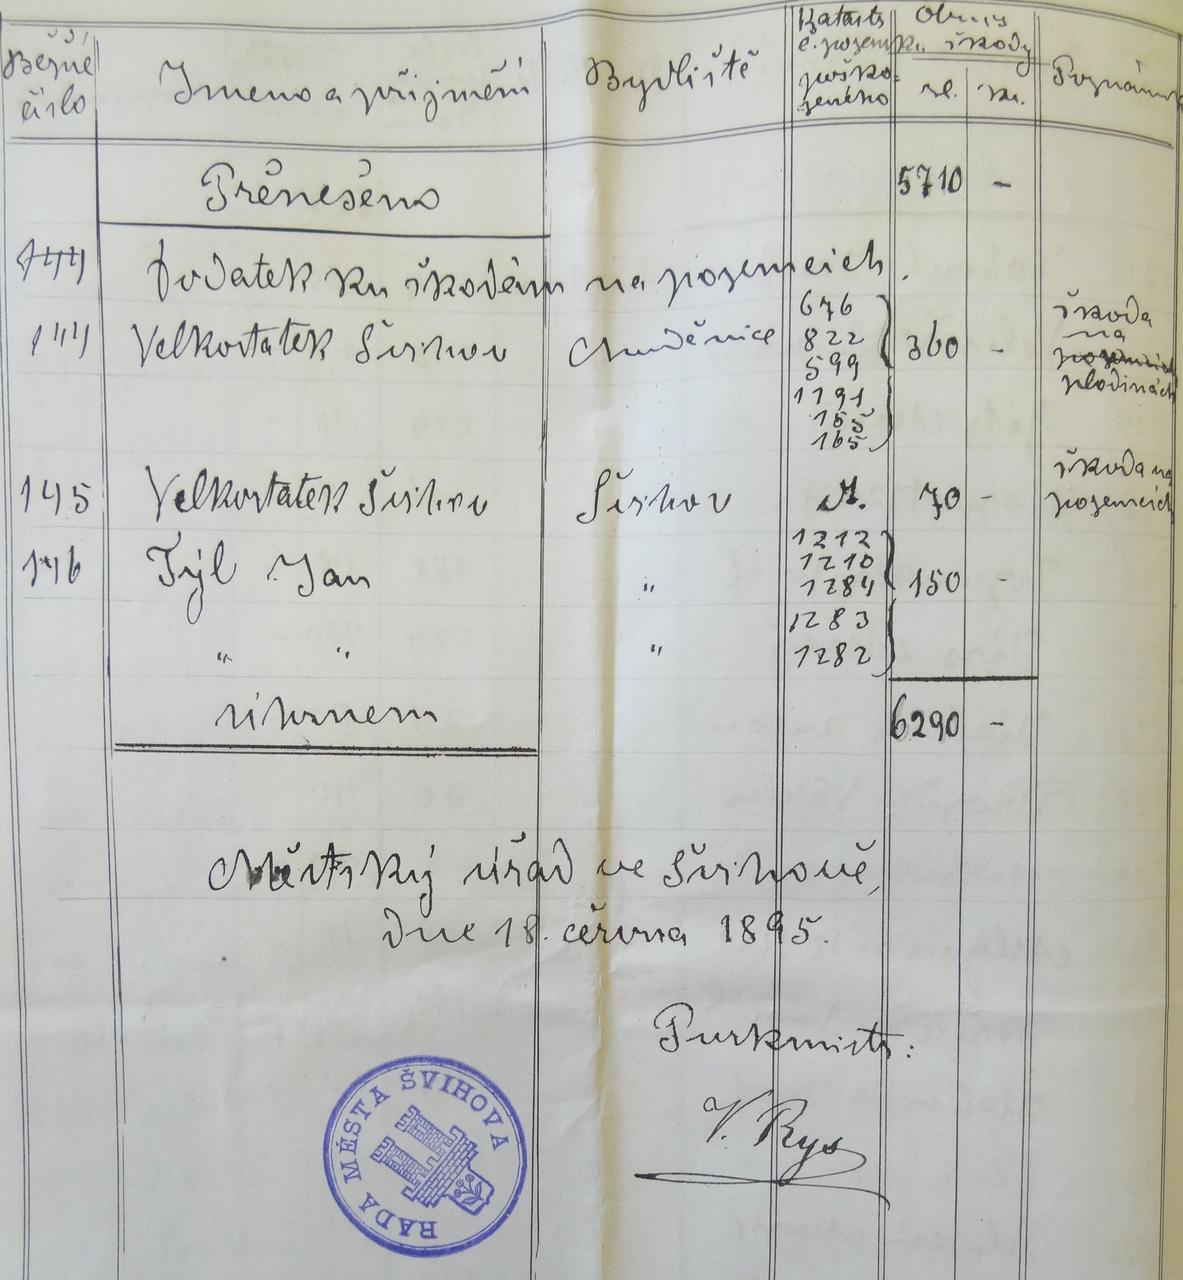 Běžné číslo
Jmeno a přijmění
Bydliště
Katastr. č. pozemku poško- zeného
Obnos škody
zl. kr.
Poznámka
Přenešeno 5710 -
144
Dodatek ku škodám na pozemcích.
144 Velkostatek Švihov Chuděnice 676 822 599 1191 155 165 360 - škoda na pozemcích plodinách
145 Velkostatek Švihov Švihov 70 - škoda na pozemcích
146 Týl Jan " 1212 1210 1284 150 -
" " " 1283 1282
úhrnem 6290 -
Městský úřad ve Švihově,
dne 18. června 1895.
Purkmistr:
V. Rys
RADA MĚSTA ŠVIHOVA